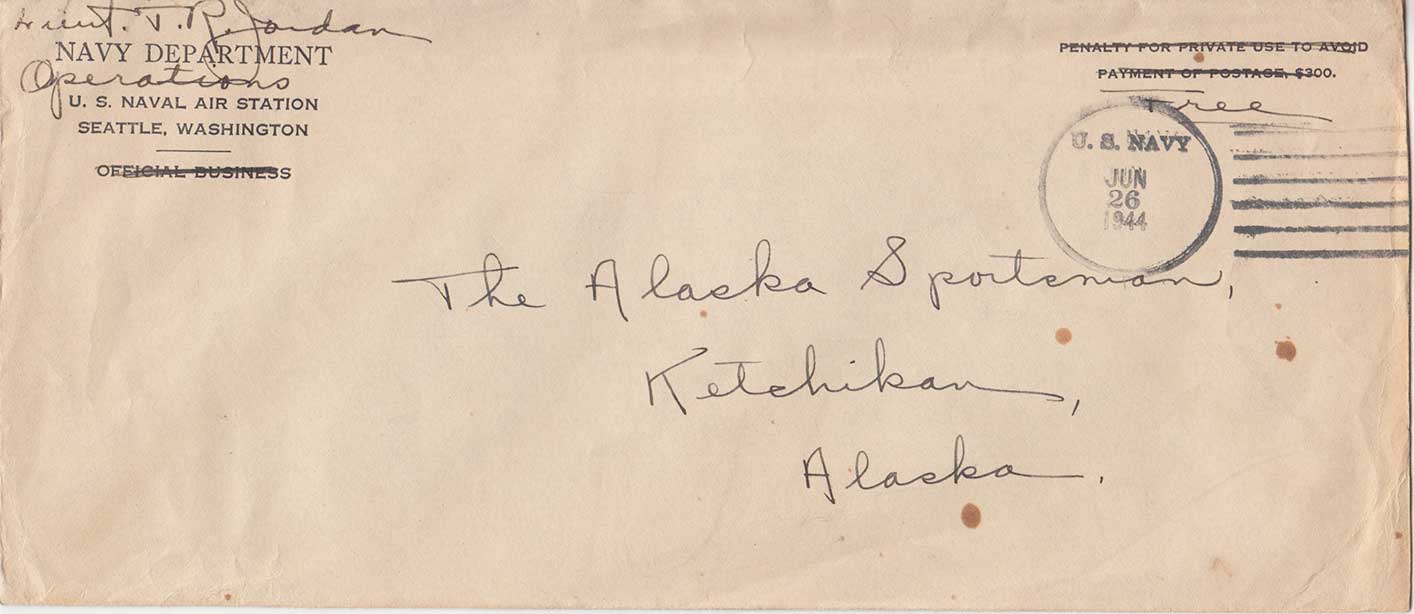 Lieut. T. R. Jordan
NAVY DEPARTMENT
Operations
U. S. NAVAL AIR STATION
SEATTLE, WASHINGTON
OFFICIAL BUSINESS
PENALTY FOR PRIVATE USE TO AVOID
PAYMENT OF POSTAGE, $300.
Free
U. S. NAVY
JUN
26
1944
The Alaska Sportsman,
Ketchikan,
Alaska.